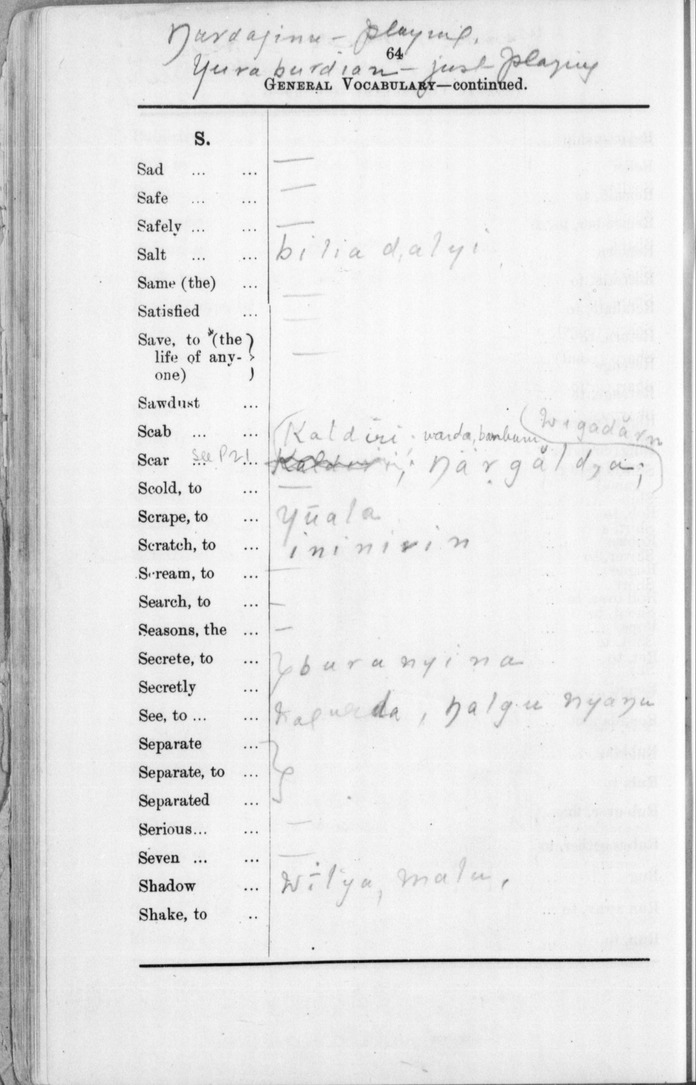 playing.
64
Yura burdian - just playing
GENERAL VOCABULARY—continued.
S.
Sad ... ... —
Safe ... ... —
Safely ... ... —
Salt ... ... bilia dalyi
Same (the) ... —
Satisfied ... —
Save, to (the life of any- —
one)
Sawdust ...
Scab ... ... Kaldiri. warda, bambum wigadărn
Scar see P21 ... năr găl dya;
Scold, to ... —
Scrape, to ... yūala
Scratch, to ... ininirin
Scream, to ... —
Search, to ... —
Seasons, the ... —
Secrete, to ... buranyina
Secretly
See, to ... ... nalgu nyanu
Separate ...
Separate, to ...
Separated ...
Serious... ... —
Seven ... ... —
Shadow ... wilya, malu,
Shake, to ..